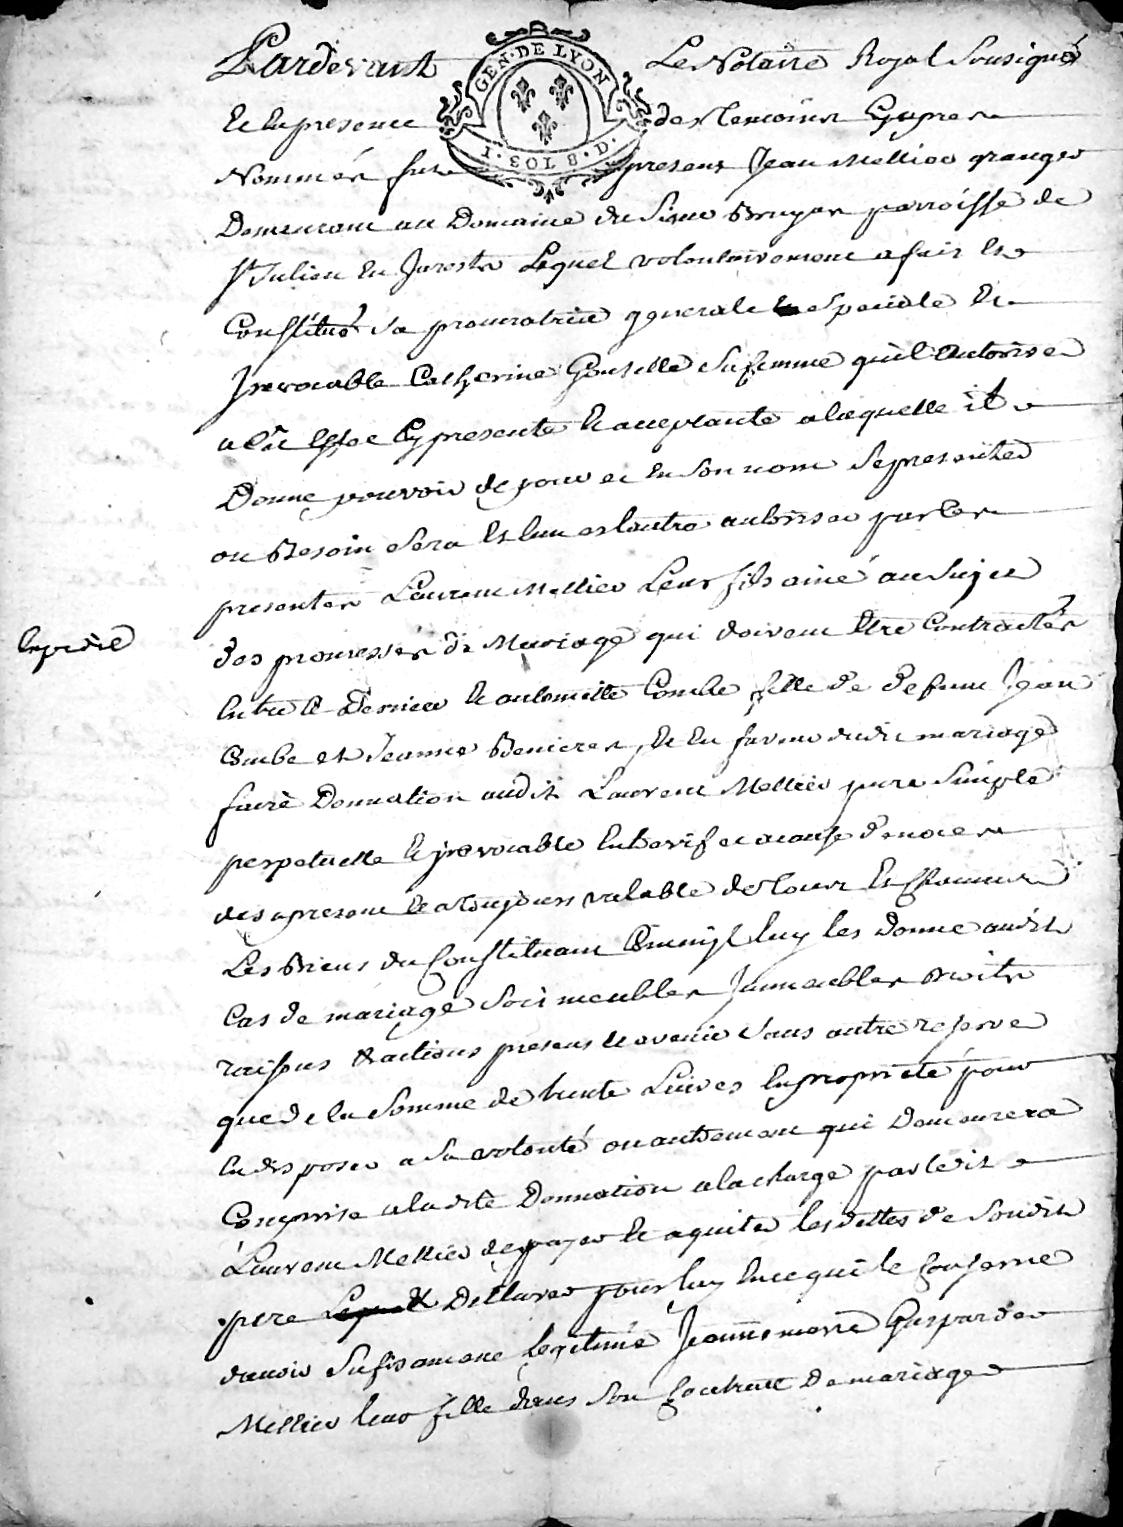 Pardevant Le Notaire Royal Sousigné
GEN·DE LYON
Et En presence des Temoins Cy apres
I·SOL 8·D·
Nommés fut present Jean Mellier granger
Demeurant au Domaine du Sieur Bruyas parroisse de
St Julien En Jarests Lequel volontairement a fait Et
Constitué sa procuratrice generale Et speciale Et
Jrrevocable Catherine Gonselle sa femme qu'il Autorise
a Cet Effet Cy presente Et acceptante a laquelle il
Donne pouvoir de pour et En son nom Representer
ou Besoin sera Et l'un et l'autre autoriser par Ces
presentes Laurent Mellier Leur fils ainé au sujet
des promesses de Mariage qui doivent Etre Contractées
Expedié
Entre Ce Dernier Et antoinette Combe fille de defunt Jean
Combe et Jeanne Et En faveur dudit mariage
faire Donnation audit Laurent Mellier pure Simple
perpetuelle Et jrrevocable Entrevif et acause de noces
des apresent Et a toujours valable de tous Et Chacuns
Les Biens du Constituant luy les donne audit
Cas de mariage soit meubles Jmmeubles Droits
raisons & actions presens Et avenir sans autre reserve
que de la somme de trente Livres En proprieté pour
En disposer a sa volonté ou autrement qui Demeurera
Comprise a la dite Donnation a la charge par ledit
Laurent Mellier de payer Et aquiter les dettes de Soudit
pere Declarer pour luy En ce qui le Conserne
d'avoir sufisament legitimé Jeanne marie Gasparde
Mellier leur fille dans son Contract de mariage